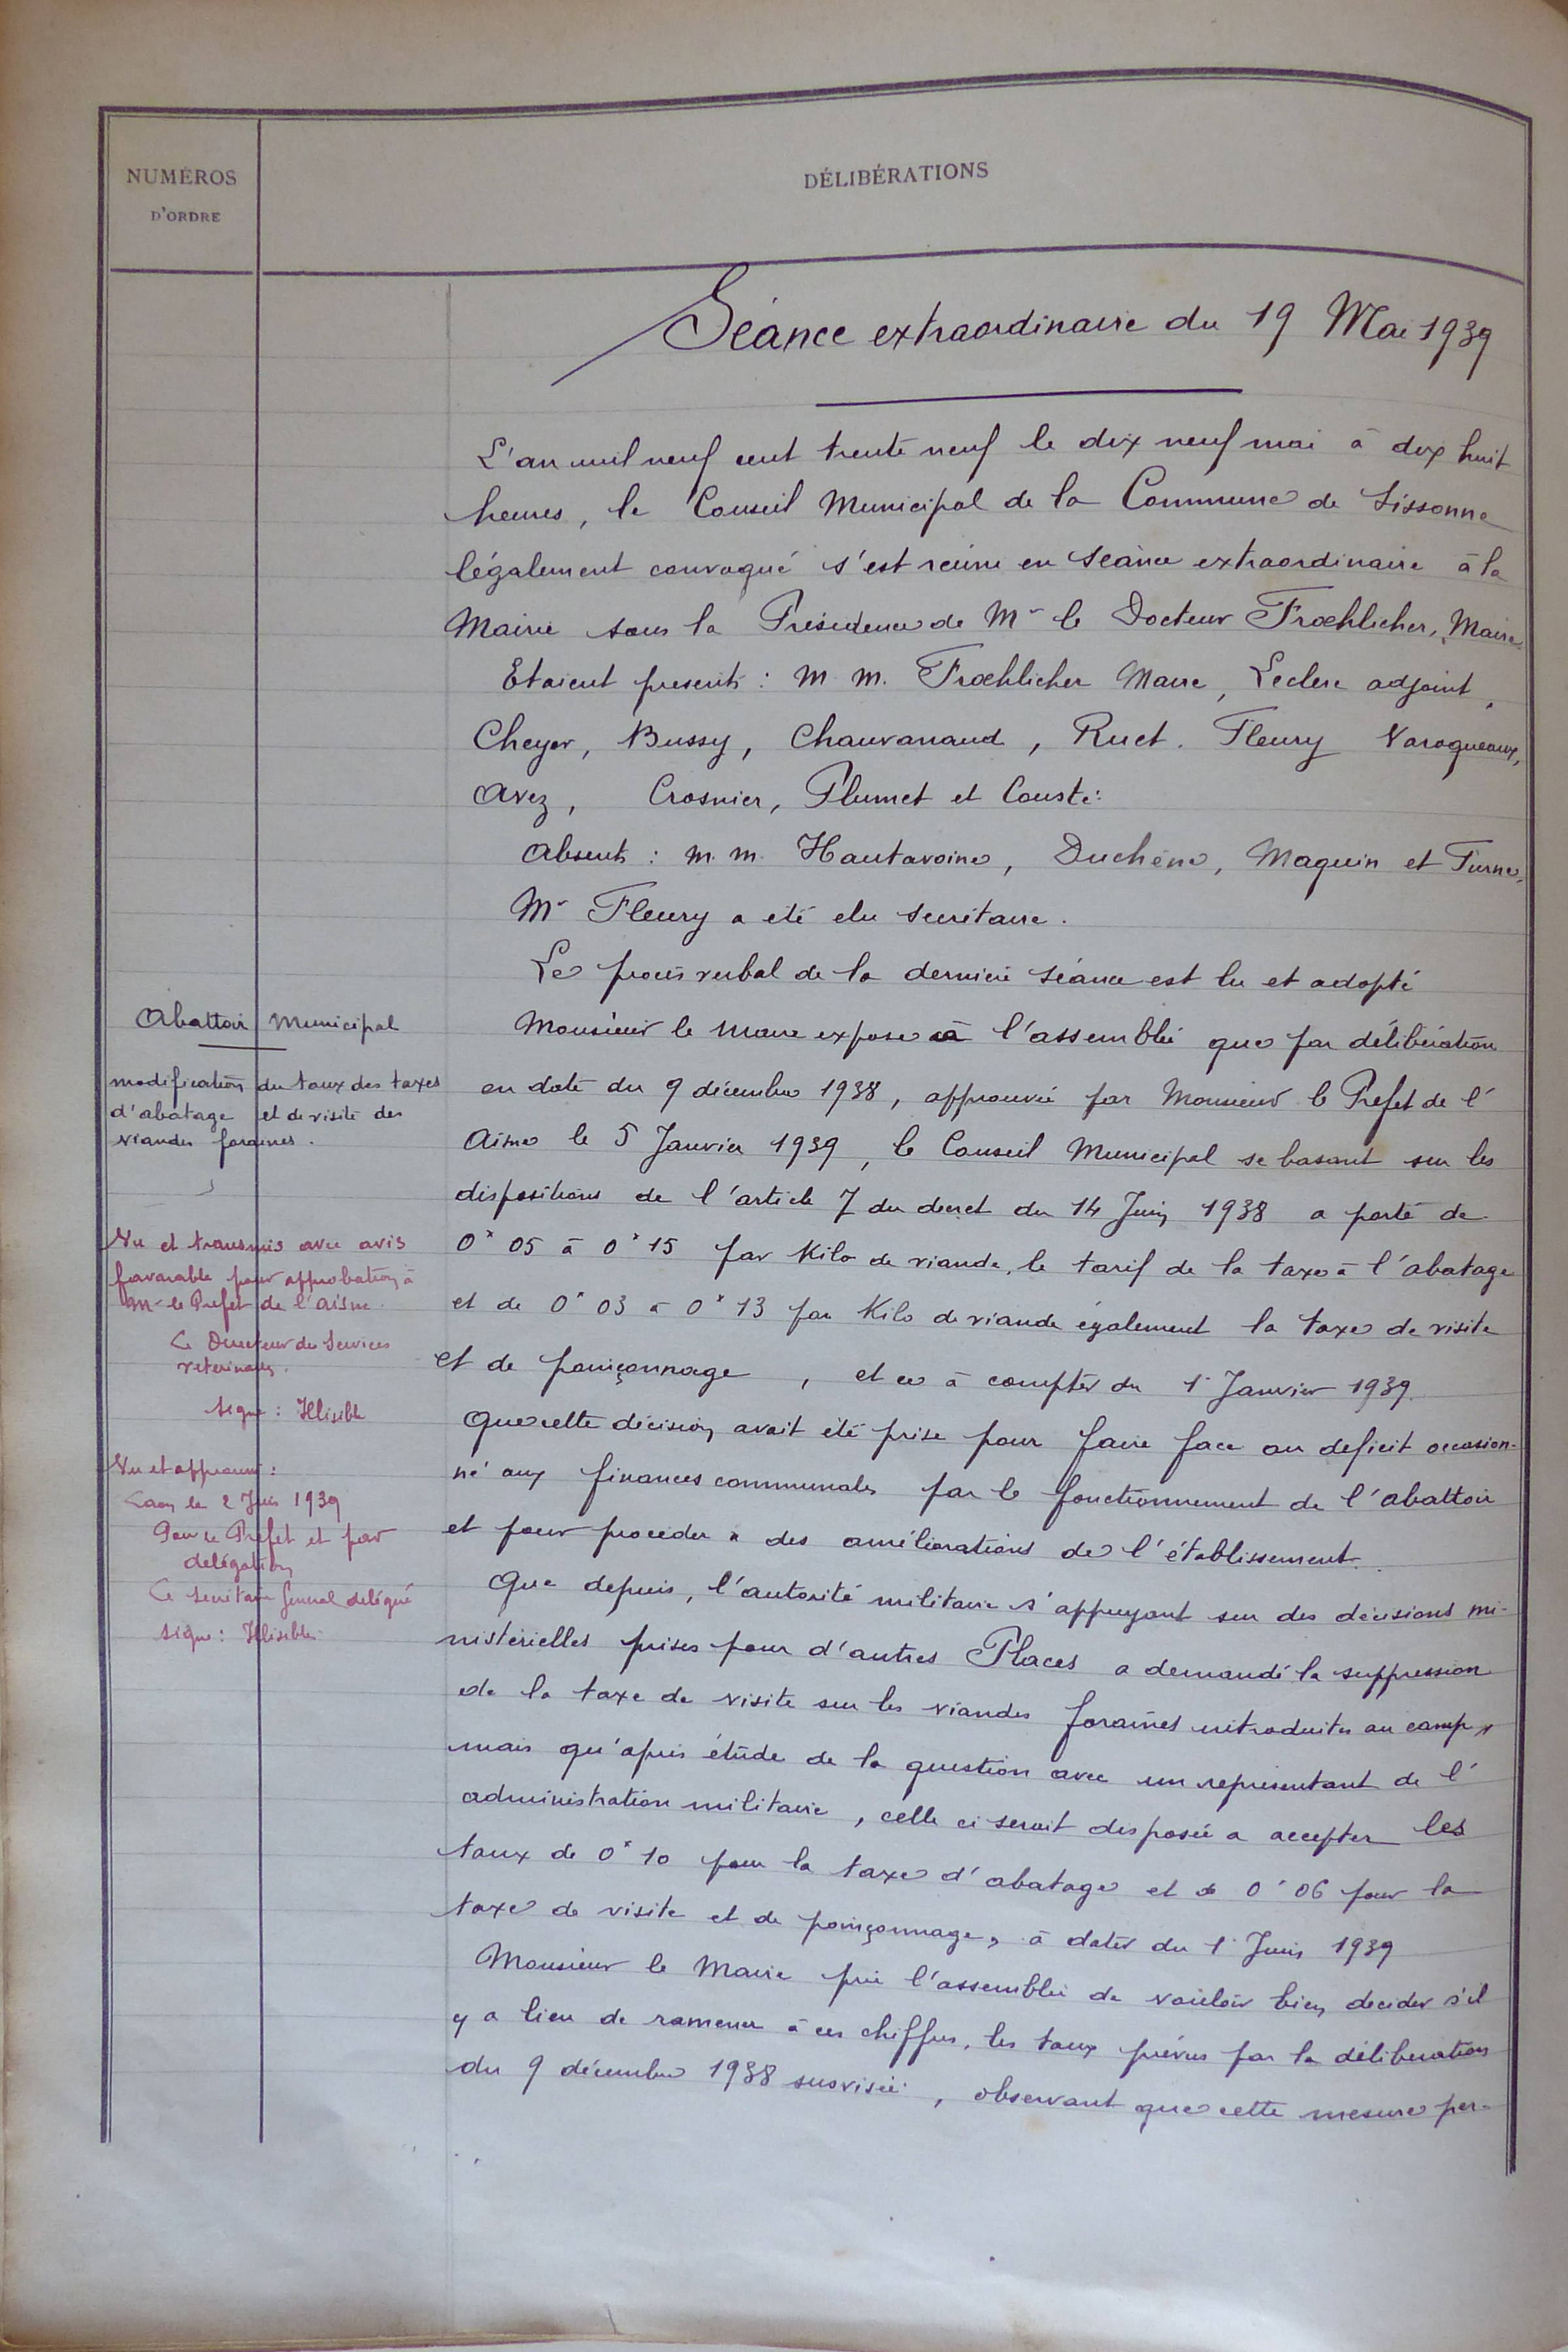 NUMÉROS
D'ORDRE
DÉLIBÉRATIONS
Séance extraordinaire du 19 Mai 1939
L'an mil neuf cent trente neuf le dix neuf mai à dix huit
heures, le Conseil Municipal de la Commune de Sissonne
légalement convoqué s'est réuni en séance extraordinaire à la
Mairie sous la Présidence de Mr le Docteur Froehlicher, Maire.
Etaient présents : M. M. Froehlicher Maire, Leclerc adjoint,
Cheyer, Bussy, Chauvanaud, Ruet. Fleury Varoqueaux,
Avez, Crosnier, Plumet et Cousté.
Absents : M. M. Hautavoine, Duchêne, Maguin et Turne.
Mr Fleury a été élu secrétaire.
Le procès verbal de la dernière séance est lu et adopté
Abattoir Municipal
modification du taux des taxes
d'abatage et de visite des
viandes foraines.
Vu et transmis avec avis
favorable pour approbation à
Mr le Préfet de l'Aisne.
Le Directeur des Services
vétérinaires.
Signé : Illisible
Vu et approuvé :
Laon le 2 Juin 1939
Pour le Préfet et par
délégation
Le Secrétaire Général délégué
Signé : Illisible
Monsieur le Maire expose à l'assemblée que par délibération
en date du 9 décembre 1938, approuvée par Monsieur le Préfet de l'
Aisne le 5 Janvier 1939, le Conseil Municipal se basant sur les
dispositions de l'article 7 du décret du 14 Juin 1938 a porté de
0f05 à 0f15 par Kilo de viande, le tarif de la taxe à l'abatage
et de 0f03 à 0f13 par Kilo de viande également la taxe de visite
et de poinçonnage, et ce à compter du 1r Janvier 1939.
Que cette décision avait été prise pour faire face au déficit occasion-
né aux finances communales par le fonctionnement de l'abattoir
et pour procéder à des améliorations de l'établissement.
Que depuis, l'autorité militaire s'appuyant sur des décisions mi-
nistérielles prises pour d'autres Places a demandé la suppression
de la taxe de visite sur les viandes foraines introduites au camp,
mais qu'après étude de la question avec un représentant de l'
administration militaire, celle ci serait disposée à accepter les
taux de 0f10 pour la taxe d'abatage et de 0f06 pour la
taxe de visite et de poinçonnage, à dater du 1r Juin 1939
Monsieur le Maire prie l'assemblée de vouloir bien décider s'il
y a lieu de ramener à ces chiffres, les taux prévus par la délibération
du 9 décembre 1938 susvisée, observant que cette mesure per-